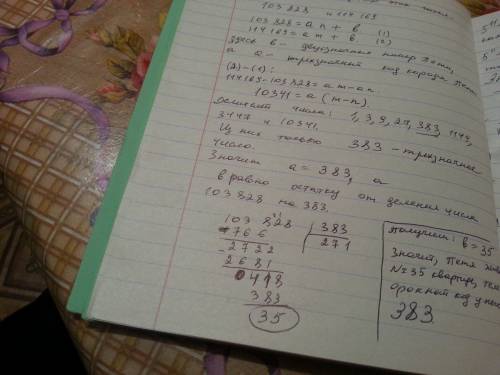 103 828 и 114 169
103 828 = an + b (1)
114 169 = am + b (2)
Здесь b - двузначный номер Пети,
а a - трехзначный код города Пети
(2)-(1):
114169-103828 = am - an
10341 = a(m-n)
числа: 1, 3, 9, 27, 383, 1149,
3447 и 10341.
Из них только 383 - трехзначное
число.
Значит a = 383, а
b равно остатку от деления числа
103 828 на 383.
103 828 383
766 271
2722
2681
0418
383
35
Получим: b = 35
Значит, Петя
№35 квартире,
код у
383.